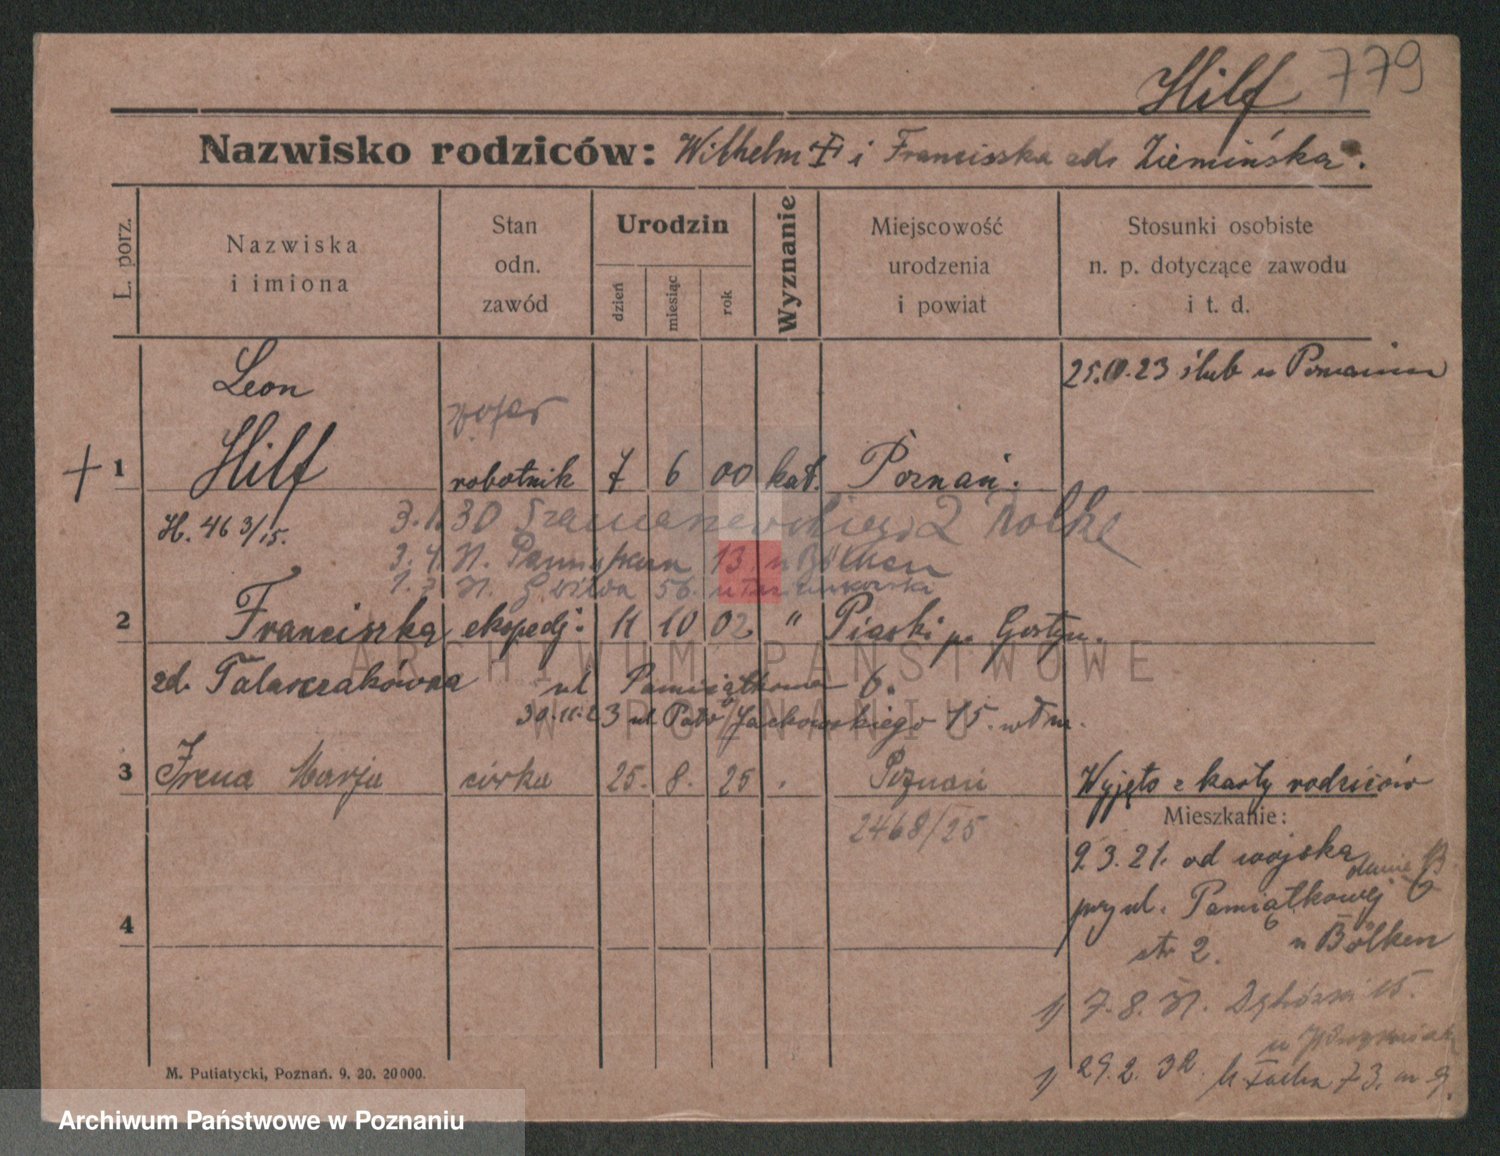 Hilf 779
Nazwisko rodziców: Wilhelm i Franciszka zd. Ziemińska.
L. porz.
Nazwiska
i imiona
Stan
odn.
zawód
Urodzin
dzień
miesiąc
rok
Wyznanie
Miejscowość
urodzenia
i powiat
Stosunki osobiste
n. p. dotyczące zawodu
i t. d.
Leon
25.10.23 ślub w Poznaniu
+ 1 Hilf robotnik 7 6 00 kat. Poznań.
H. 46 3/15.
3.1.30 2
3.4. 13 u Bölken
56.
2 Franciszka ekspedj. 11 10 02 " Piaski p. Gostyń.
zd. Talarczakówna ul Pamiątkowa 6.
ARCHIWUM PAŃSTWOWE
30.11.23 ul. Jackowskiego 15. włm.
W POZNANIU
3 Irena Marja córka 25. 8. 25 Poznań Wyjęto z karty rodziców
2468/25
Mieszkanie:
9.3.21. od wojska
przy ul. Pamiątkowej 6
4
str 2. u Bölken
1) 7.8.31. 15.
1) 29.2.32 73. m 9.
M. Putiatycki, Poznań. 9. 20. 20000.
Archiwum Państwowe w Poznaniu